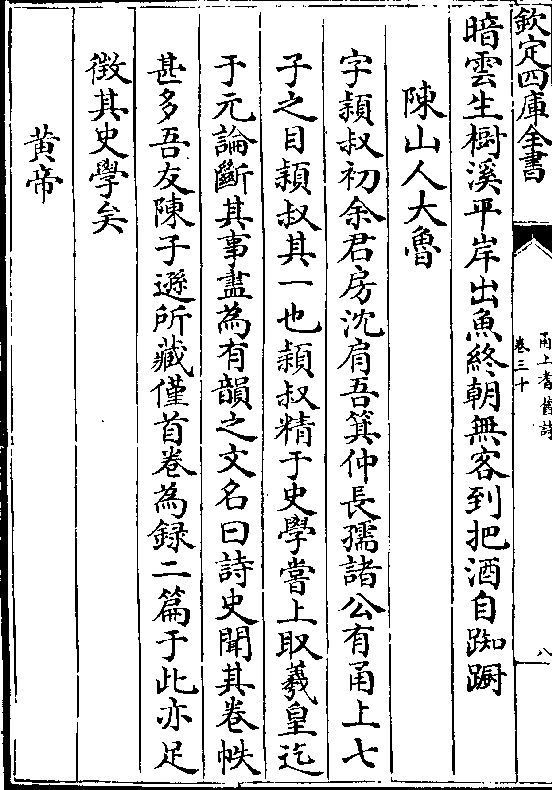 欽定四庫全書
甬上耆舊詩
卷三十
八
暗雲生樹溪平岸出魚終朝無客到把酒自踟蹰
陳山人大魯
字穎叔初余君房沈肩吾箕仲長孺諸公有甬上七
子之目穎叔其一也穎叔精于史學嘗上取羲皇迄
于元論斷其事盡為有韻之文名曰詩史聞其卷帙
甚多吾友陳子遜所藏僅首卷為錄二篇于此亦足
徴其史學矣
黄帝